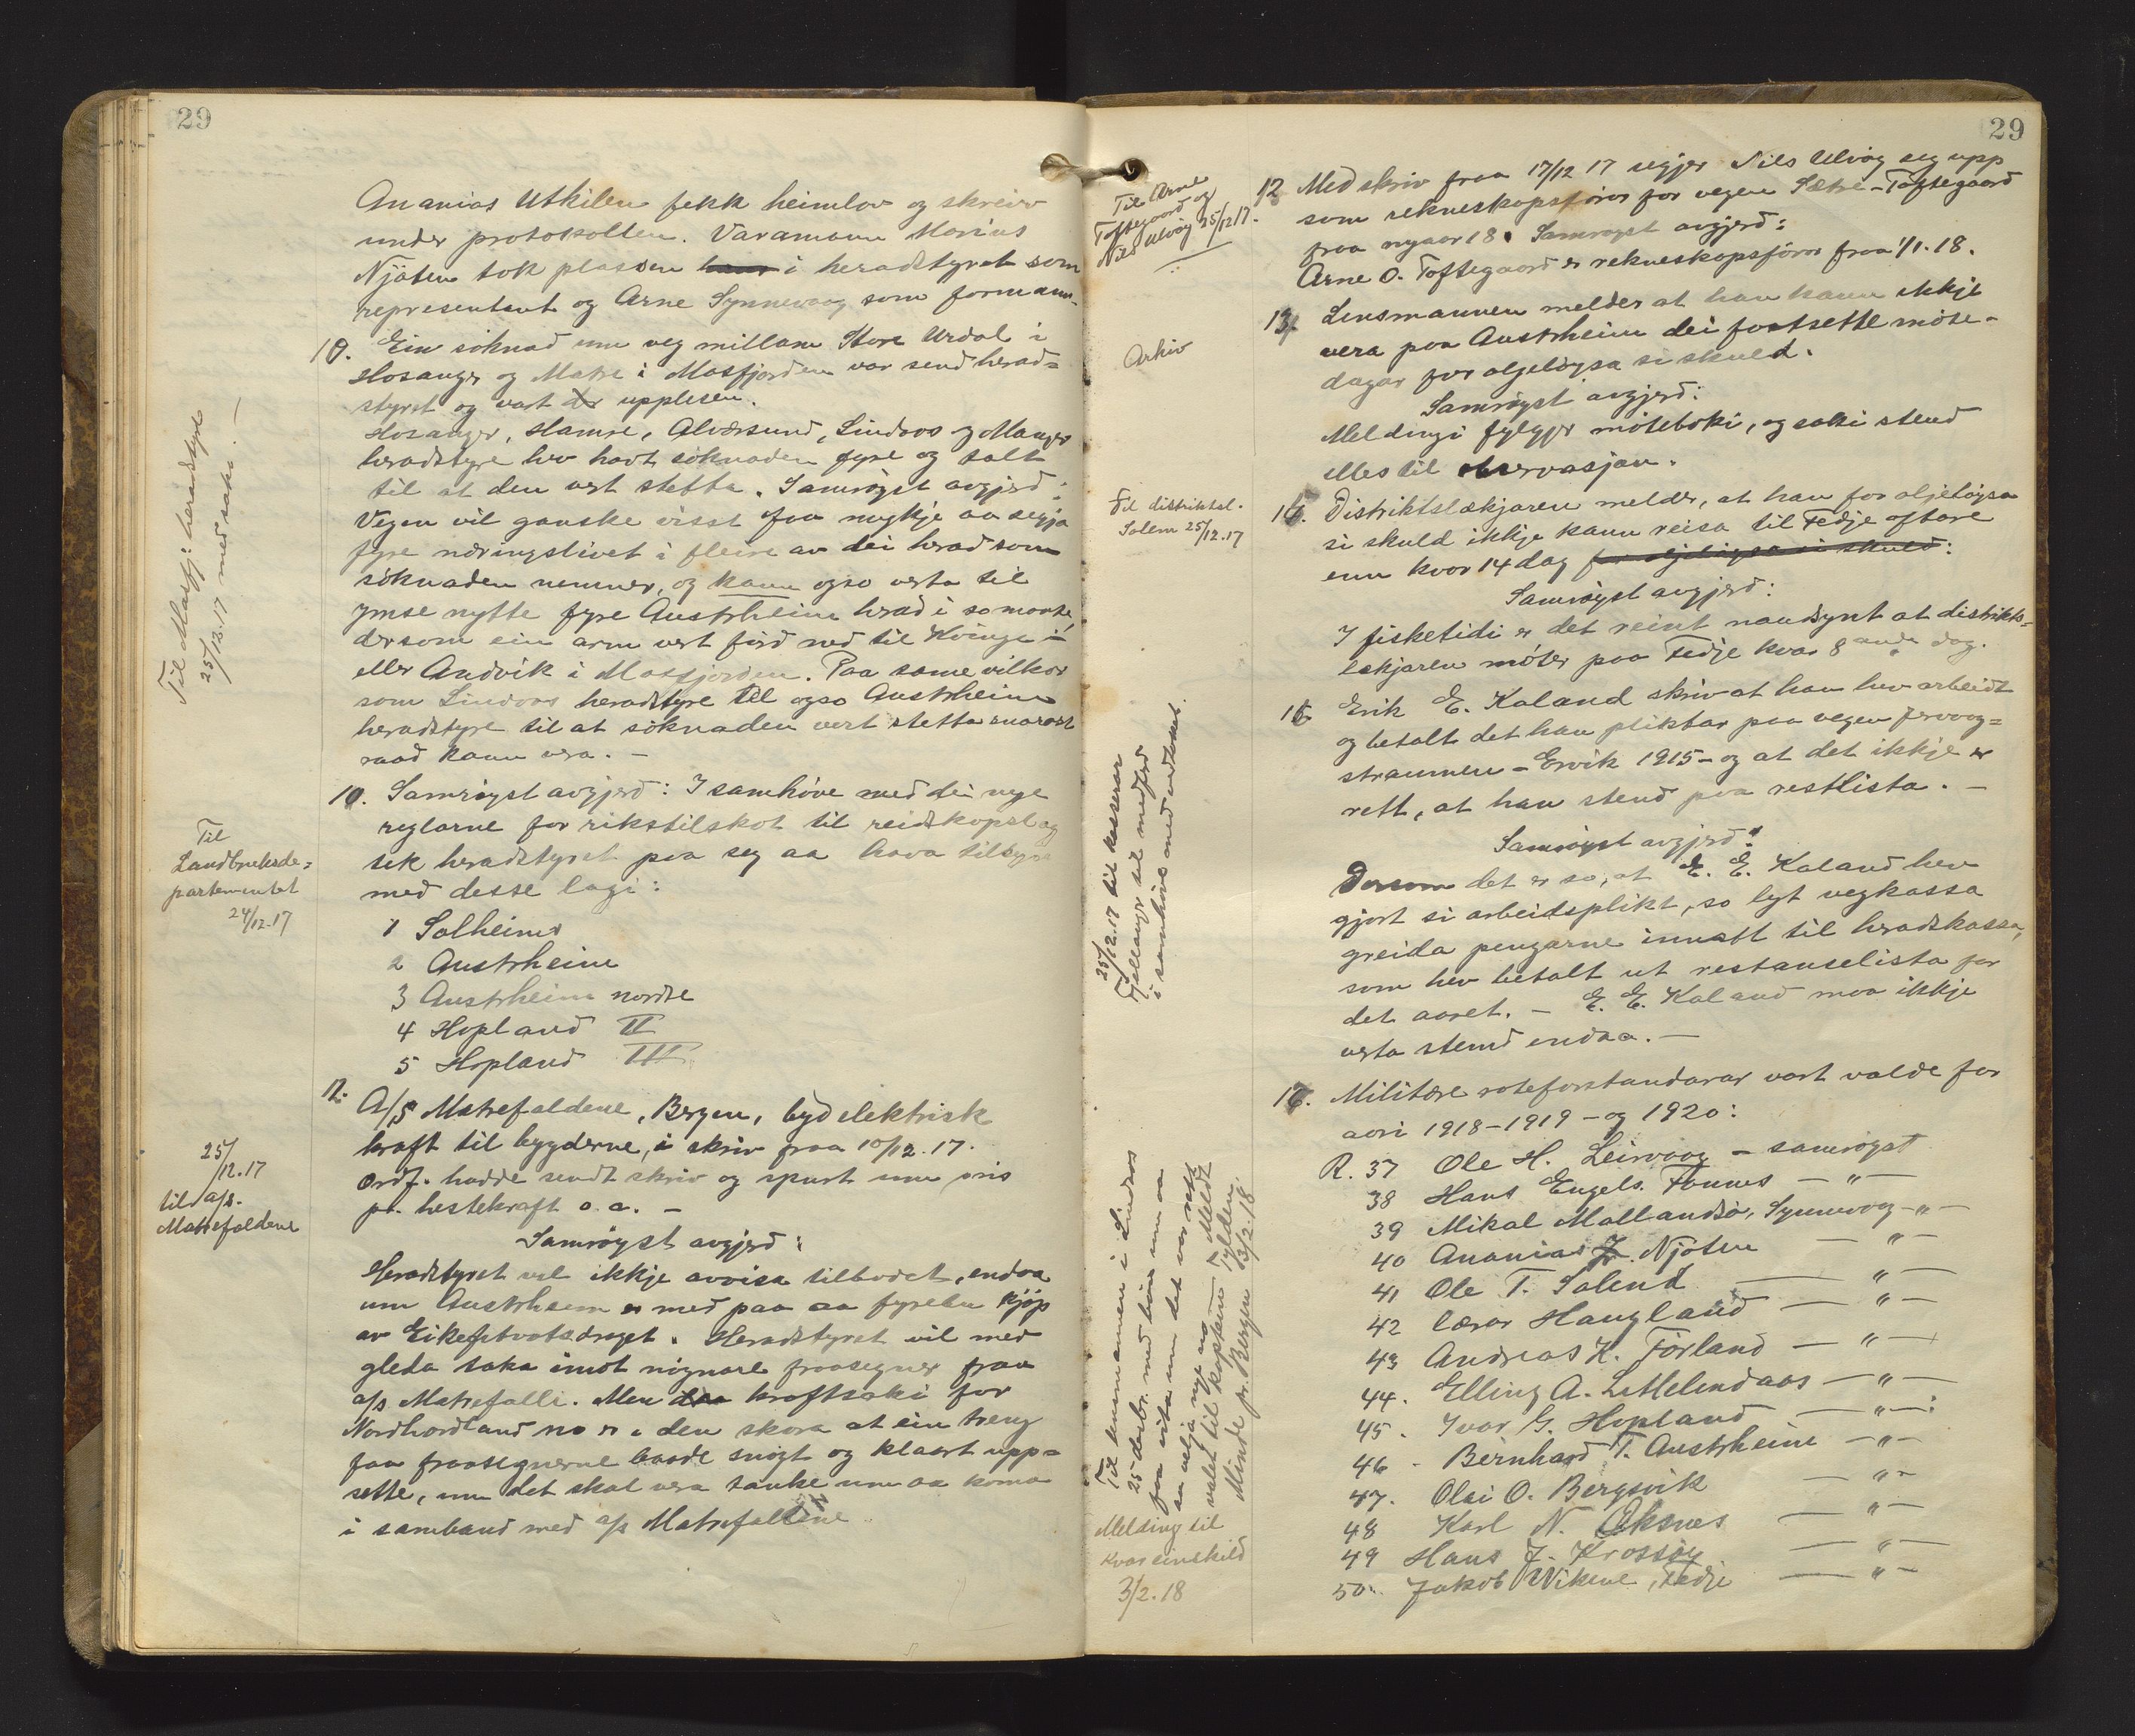 29
Ananias Utkilen fekk heimlov og skreiv
under protokollen. Varamann Marius
Njöten tok plassen hans i heradstyret som
representant og Arne Synnevaag som formann.
Til Masfj. heradstyre
25/12.17 med saki. —
10. Ein söknad um veg millom Store Urdal i
Hosanger og Matre i Masfjorden var send herad=
styret og vart upplesen.
Hosanger, Hamre, Alversund, Lindaas og Manger
heradstyre hev havt söknaden fyre og talt
til at den vert stetta. Samröyst avgjerd:
Vegen vil ganske visst faa mykje aa segja
fyre næringslivet i fleire av dei herad som
söknaden nemner, og kann ogso verta til
ymse nytte fyre Austrheim herad i so maate,
dersom ein arm vert förd ned til Kvinge i
eller Andvik i Masfjorden. Paa same vilkor
som Lindaas heradstyre til ogso Austrheim
heradstyre til at söknaden vert stetta snarast
raad kann vera. —
Til
Landbruksde=
partementet
24/12.17
10. Samröyst avgjerd: I samhöve med dei nye
reglarne for rikstilskot til reidskapslag
tek heradstyret paa seg aa hava tilsyn
med desse lagi:
1 Solheim
2 Austrheim
3 Austrheim nordre
4 Hopland II
5 Hopland III
25/12.17
til a/s.
Matrefaldene
12. A/S Matrefaldene, Bergen, byd elektrisk
kraft til bygderne, i skriv fraa 10/12.17.
Ordf. hadde sendt skriv og spurt um pris
pr. hestekraft o.a. —
Samröyst avgjerd:
Heradstyret vil ikkje avvisa tilbodet, endaa
um Austrheim er med paa aa fyrebu kjöp
av Eikefetvatsdraget. Heradstyret vil med
gleda taka imot nignare fraasegner fraa
a/s Matrefalli. Men kraftsaki for
Nordhordland no er i den skora at ein treng
faa fraasegnerne baade snögt og klaart upp=
sette, um det skal vera tanke um aa koma
i samband med a/s Matrefaldene
29
Til Arne
Toftegaard og
Nils Ulvög 25/12 17.
12 Med skriv fraa 17/12 17 segjer Nils Ulvøg seg upp
som rekneskapsförar for vegen Sætre-Toftegaard
fraa nyaar 18. Samröyst avgjerd:
Arne O. Toftegaard er rekneskapsförar fraa 1/1.18.
Arkiv
13. Lensmannen melder at han kann ikkje
vera paa Austrheim dei fastsette möte-
dagar for oljelöysa si skuld.
Samröyst avgjerd:
Meldingi fylgjer möteboki, og saki stend
elles til observasjon.
Til distriktsl.
Solem 25/12.17
15. Distriktslækjaren melder, at han for oljelöysa
si skuld ikkje kann reisa til Fedje oftare
enn kvar 14 dag for oljelöysa si skuld:
Samröyst avgjerd:
I fisketidi er det reint naudsynt at distrikts=
lækjaren möter paa Fedje kvar 8 ande dag.
25/12.17 til kasserar
Fjellanger til medferd
i samhöve med vedtaket.
16 Erik E. Kaland skriv at han hev arbeidt
og betalt det han pliktar paa vegen Javaag=
straumen - Ervik 1915 - og at det ikkje er
rett, at han stend paa restlista. —
Samröyst avgjerd:
Dersom det er so, at E. E. Kaland hev
gjort si arbeidsplikt, so lyt vegkassa
greida pengarne innatt til heradskassa,
som hev betalt ut restanselista for
det aaret. — E. E. Kaland maa ikkje
verta stemd endaa. —
Til lensmannen i Lindaas
25 desbr. med bön um aa
faa vita um det var rett
aa velja nye no
valet til kaptein Tylden Meldt
Minde pr. Bergen 3/2.18.
Melding til
kvar einskild
3/2.18
16. Militære roteforstandarar vart valde for
aari 1918-1919 - og 1920:
R. 37 Ole H. Leirvaag - samröyst
38 Hans Engels. Fonnes — " —
39 Mikal Mallandsö, Synnevaag - " —
40 Ananias Njöten — " —
41 Ole T. Solend — " —
42 Lærar Haugland — " —
43 Andreas K. Förland — " —
44. Elling A. Littelendaas — " —
45. Ivar G. Hopland — " —
46 - Bernhard T. Austrheim — " —
47. Olai O. Bergsvik — " —
48 Karl N. Oksnes — " —
49 Hans J. Krossöy — " —
50. Jakob Wikene, Fedje — " —